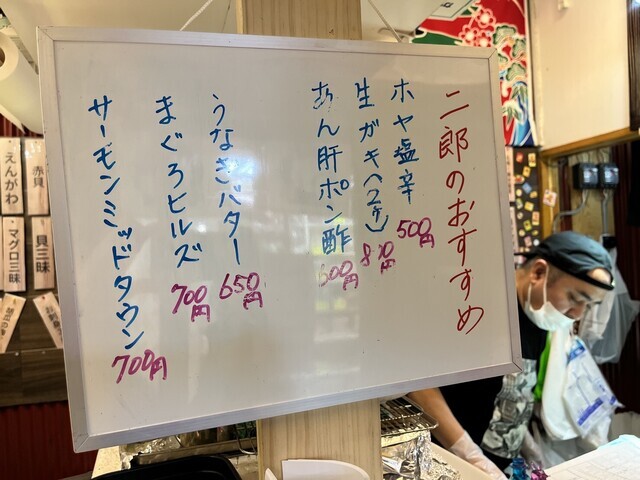 二郎のおすすめ
ホヤ塩辛 500円
生ガキ(2ケ) 810円
あん肝ポン酢 600円
うなぎバター 650円
まぐろヒルズ 700円
サーモンミッドタウン 700円
赤貝
えんがわ
貝三昧
マグロ三昧